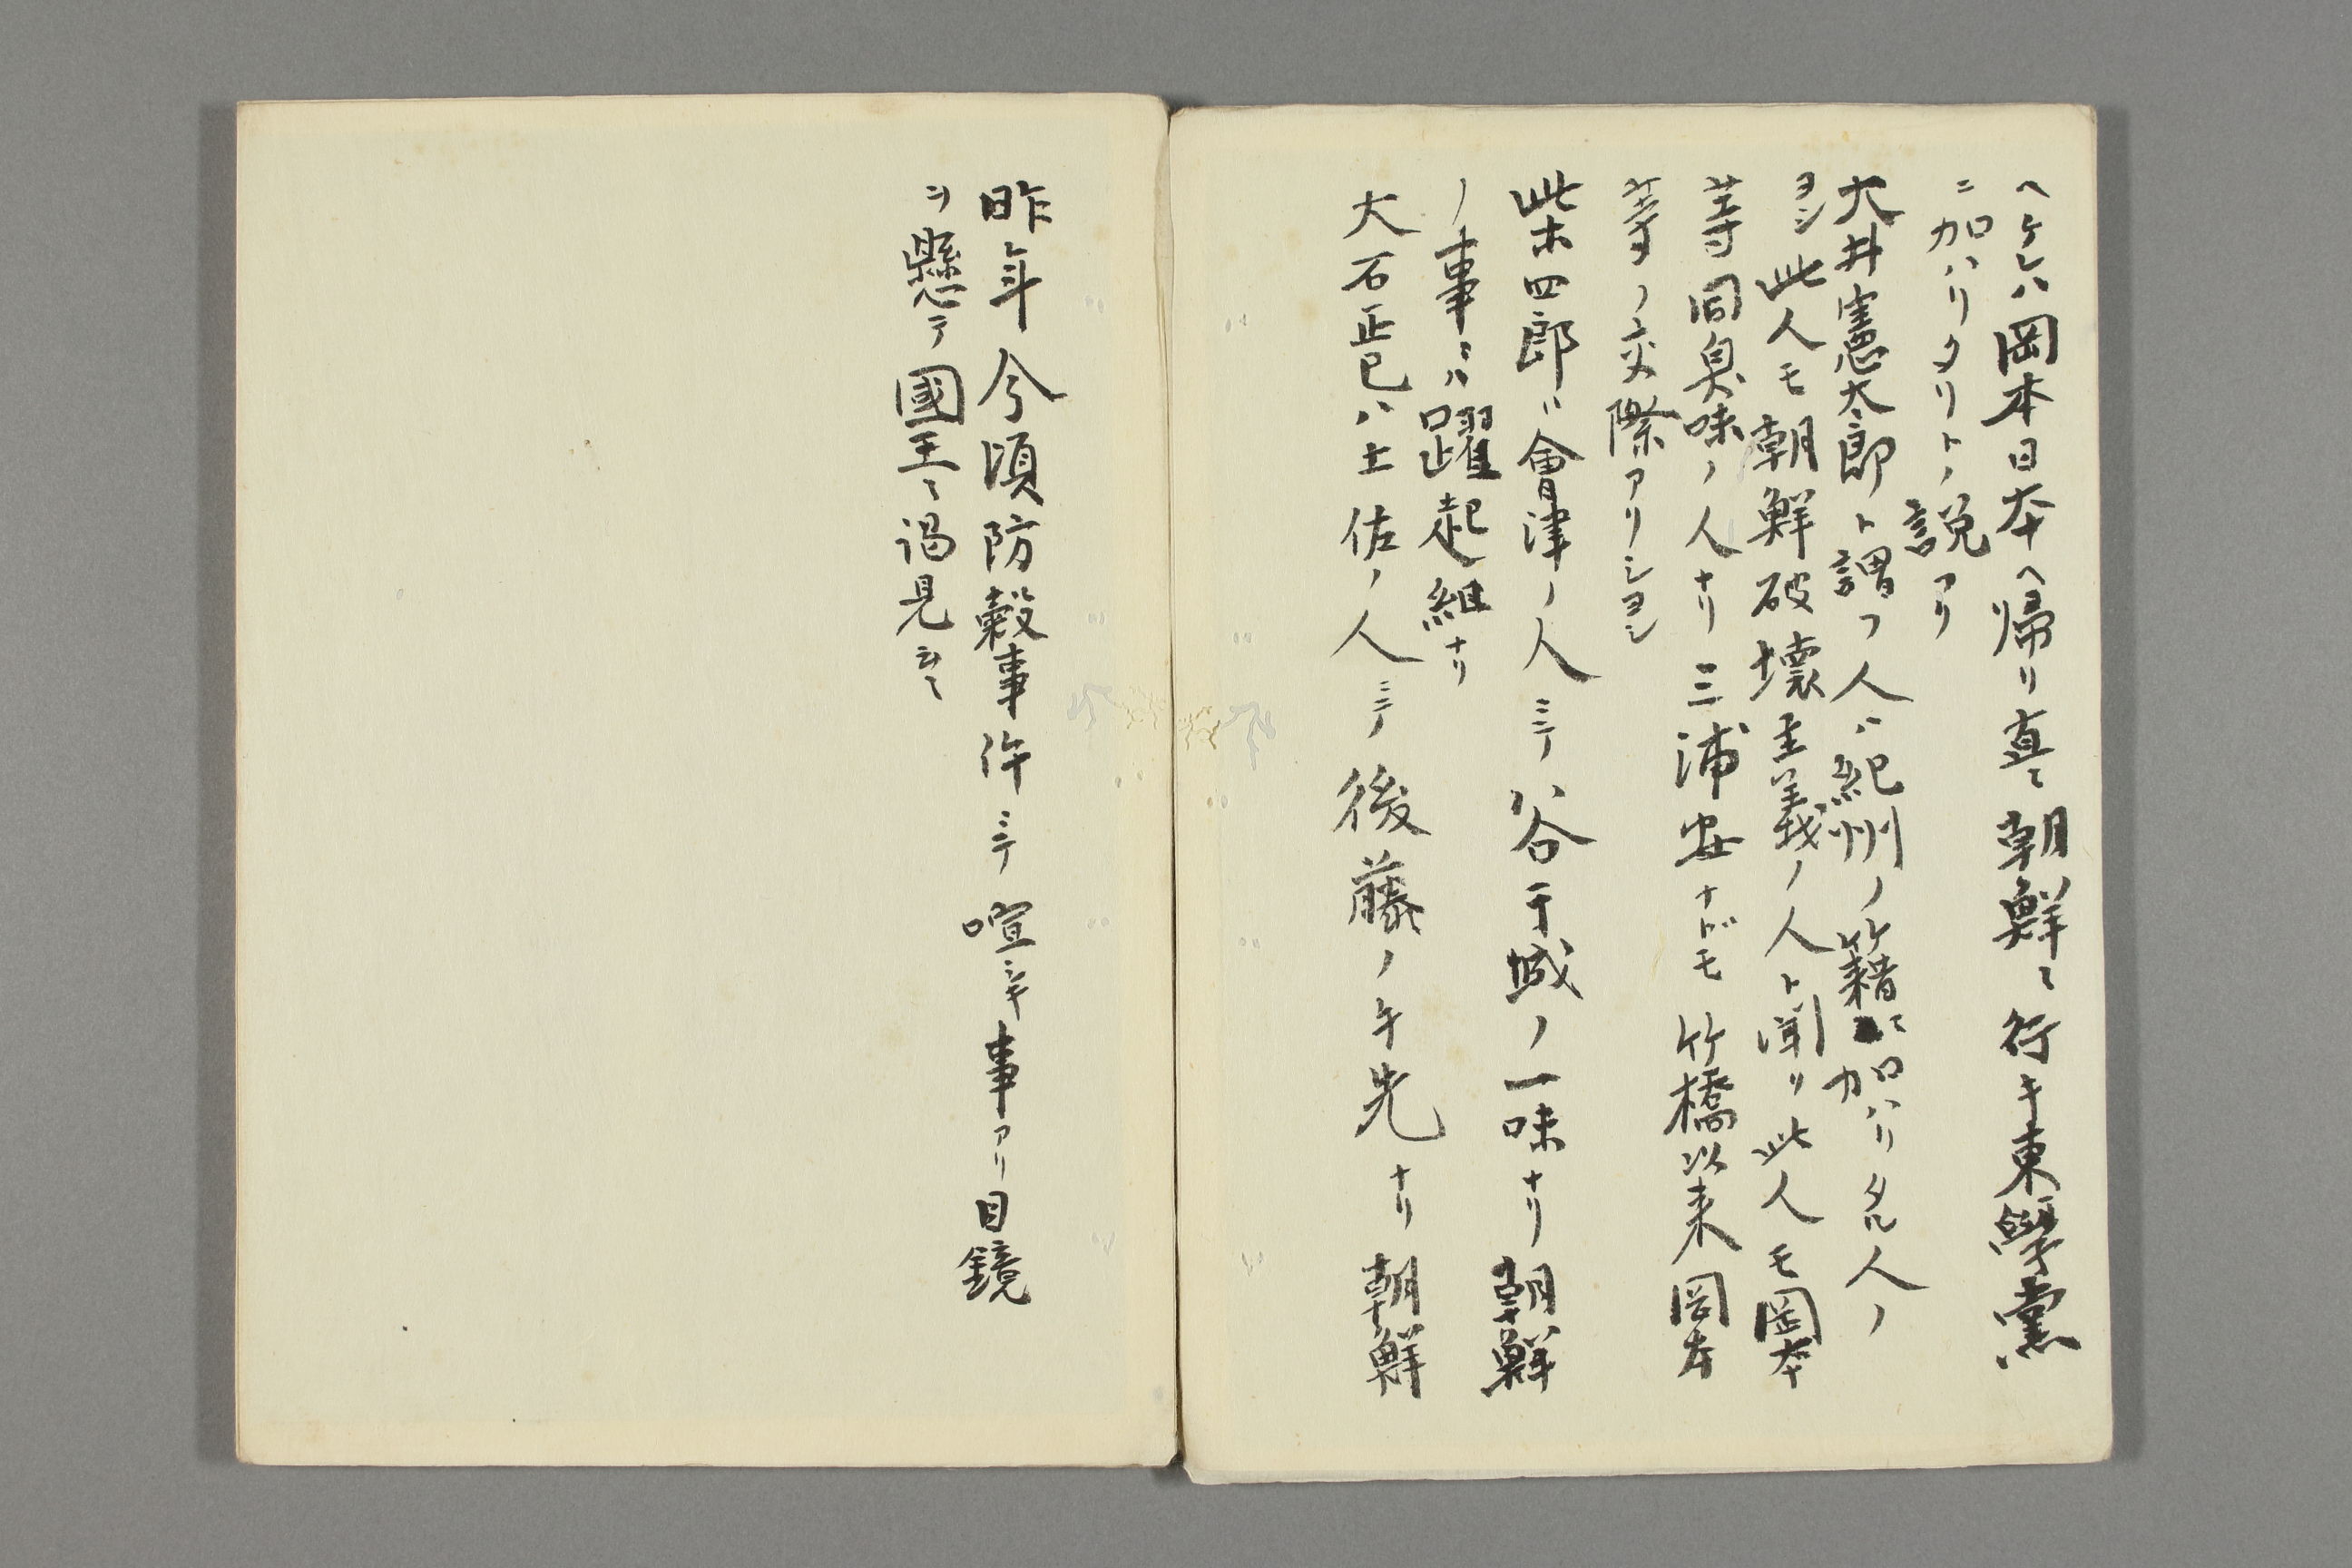 ヘケレハ岡本日本ヘ帰リ直ニ朝鮮ニ行キ東學黨
ニ加ハリタリトノ説アリ
大井憲太郎ト謂フ人ハ紀州ノ籍ニ加ハリタル人ノ
ヨシ此人モ朝鮮破壊主義ノ人ト聞リ此人モ岡本
等同臭味ノ人ナリ三浦安ナドモ竹橋以来岡本
等ノ交際アリシヨシ
柴四郎ハ會津ノ人ニテ谷干城ノ一味ナリ朝鮮
ノ事ニハ躍起組ナリ
大石正巳ハ土佐ノ人ニテ後藤ノ手先ナリ朝鮮
昨年今頃防穀事件ニテ喧シキ事アリ目鏡
ヲ懸テ國王ニ謁見シテ